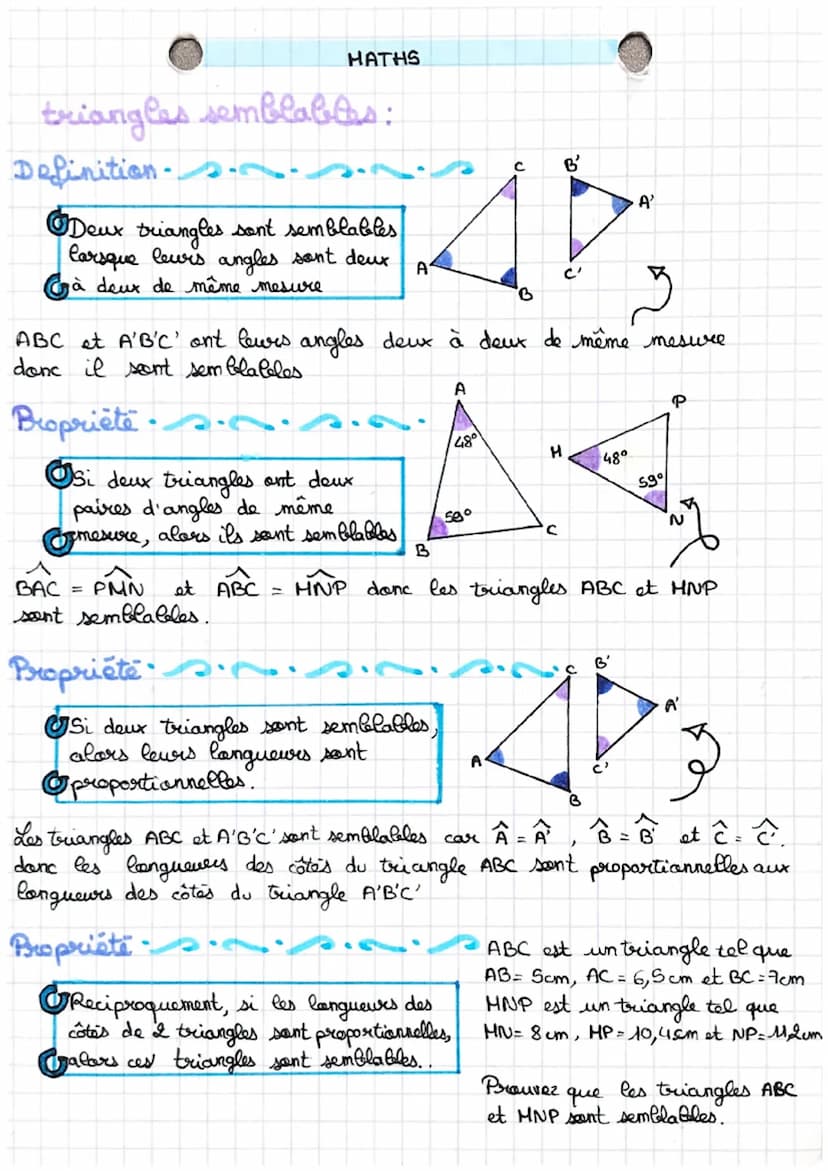 MATHS
triangles semblables :
Definition
C
B'
A'
A
B
C'
Deux triangles sont semblables
lorsque leurs angles sont deux
à deux de même mesure
ABC et A'B'C' ont leurs angles deux à deux de même mesure
donc il sont semblables
Propriété
A
48°
59°
B
C
P
M
48°
59°
N
Si deux triangles ont deux
paires d'angles de même
mesure, alors ils sont semblables
BAC = PMN et ABC = MNP donc les triangles ABC et MNP
sont semblables.
Propriété
C
B'
A'
A
C'
B
Si deux triangles sont semblables,
alors leurs longueurs sont
proportionnelles.
Les triangles ABC et A'B'C' sont semblables car Â = Â', B̂ = B̂' et Ĉ = Ĉ'.
donc les longueurs des côtés du triangle ABC sont proportionnelles aux
longueurs des côtés du triangle A'B'C'
Propriété
Reciproquement, si les longueurs des
côtés de 2 triangles sont proportionnelles,
alors ces triangles sont semblables..
ABC est un triangle tel que
AB= 5cm, AC = 6,5 cm et BC = 7cm
MNP est un triangle tel que
MN= 8 cm, MP = 10,4cm et NP= 11,2cm
Prouvez que les triangles ABC
et MNP sont semblables.